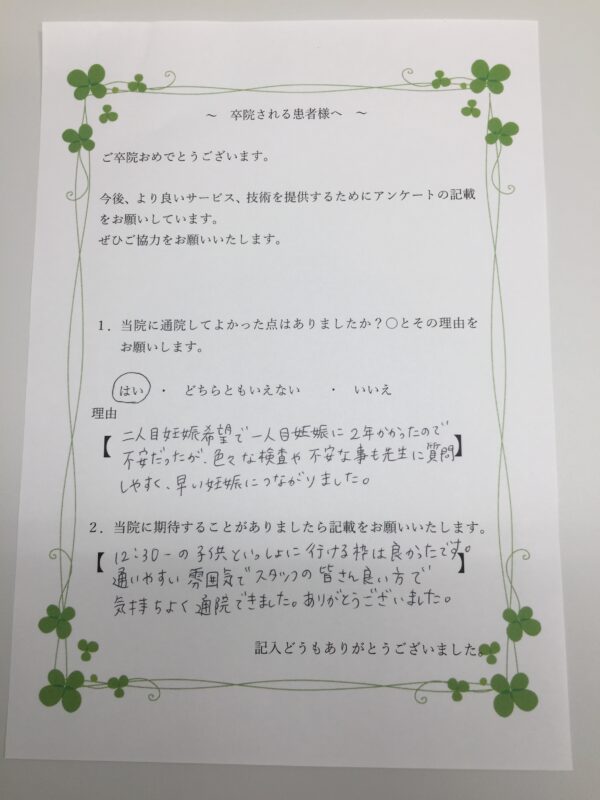 ～ 卒院される患者様へ ～
ご卒院おめでとうございます。
今後、より良いサービス、技術を提供するためにアンケートの記載
をお願いしています。
ぜひご協力をお願いいたします。
１．当院に通院してよかった点はありましたか？〇とその理由を
お願いします。
はい ・ どちらともいえない ・ いいえ
理由
【二人目妊娠希望で一人目妊娠に2年かかったので
不安だったが、色々な検査や不安な事も先生に質問
しやすく、早い妊娠につながりました。】
２．当院に期待することがありましたら記載をお願いいたします。
【12:30〜の子供といっしょに行ける枠は良かったです。
通いやすい雰囲気でスタッフの皆さん良い方で
気持ちよく通院できました。ありがとうございました。】
記入どうもありがとうございました。